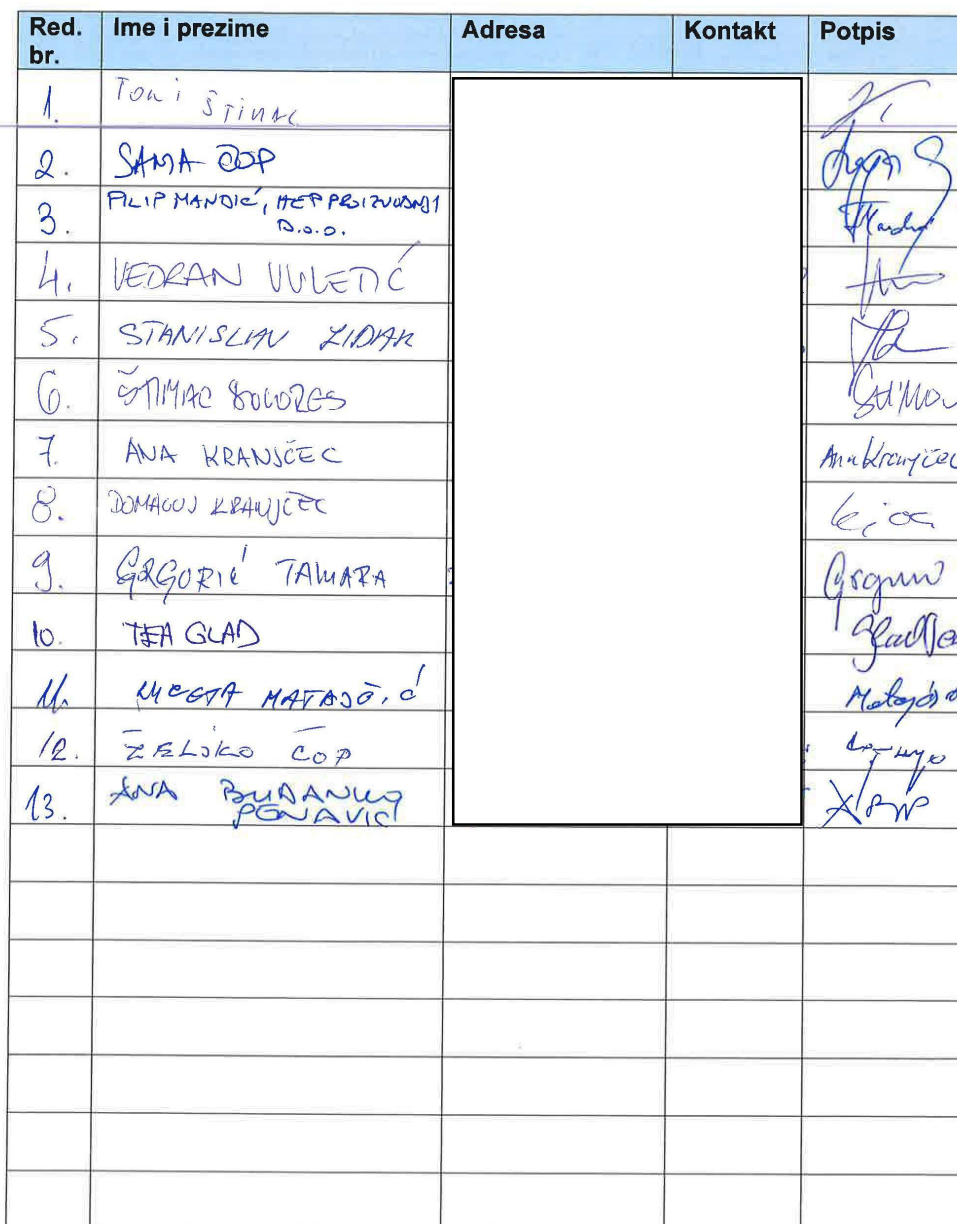 Red. br. Ime i prezime Adresa Kontakt Potpis
1. Toni Štimac
2. SANJA ČOP
3. FILIP MANDIĆ, HEP PROIZVODNJA
D.O.O.
4. VEDRAN VULETIĆ
5. STANISLAV ZIDAR
6. ŠTIMAC DOLORES
7. ANA KRANJČEC Ana Kranjčec
8. DOMAGOJ KRANJČEC
9. GRGORIĆ TAMARA
10. TEA GLAD
11. MATAJÓ, Ć
12. ŽELJKO ČOP
13. ANA BUDANKO
PONAVIĆ